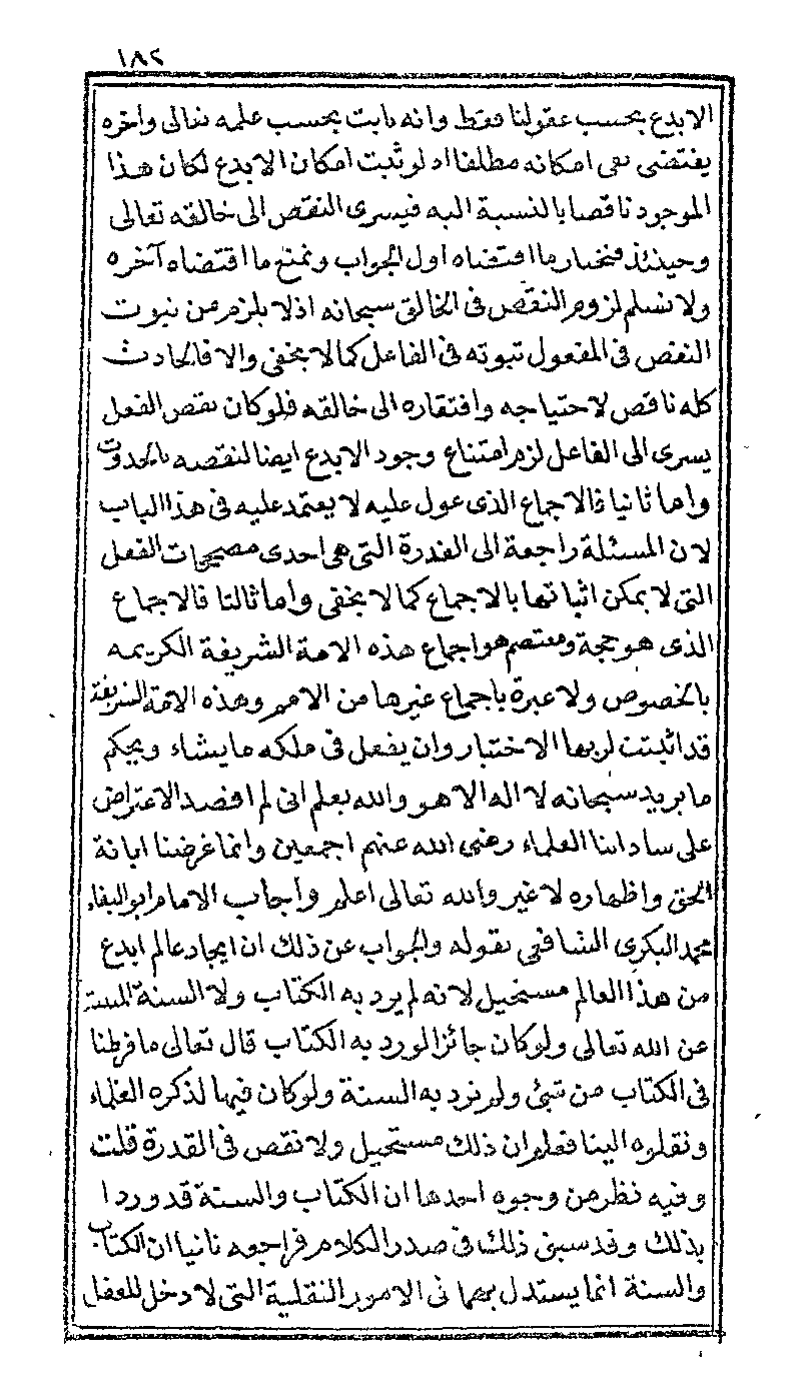 ١٨٢
الابدع بحسب عقولنا فقط وانه ثابت بحسب علمه تعالى واخره
يقتضى نفى امكانه مطلقا اذ لو ثبت امكان الابدع لكان هذا
الموجود ناقصا بالنسبة اليه فيسرى النقص الى خالقه تعالى
وحينئذ فنختار ما اقتضاه اول الجواب ونمنع ما اقتضاه آخره
ولا نسلم لزوم النقص فى الخالق سبحانه اذ لا يلزم من ثبوت
النقص فى المفعول ثبوته فى الفاعل كما لا يخفى والا فالحادث
كله ناقص لاحتياجه وافتقاره الى خالقه فلو كان نقص الفعل
يسرى الى الفاعل لزم امتناع وجود الابدع ايضا لنقصه بالحدوث
واما ثانيا فالاجماع الذى عول عليه لا يعتمد عليه فى هذا الباب
لان المسئلة راجعة الى القدرة التى هى احدى مصححات الفعل
التى لا يمكن اثباتها بالاجماع كما لا يخفى واما ثالثا فالاجماع
الذى هو حجة ومعتصم هو اجماع هذه الامة الشريفة الكريمه
بالخصوص ولا عبرة باجماع غيرها من الامم وهذه الامة الشريفة
قد اثبتت لربها الاختيار وان يفعل فى ملكه ما يشاء ويحكم
ما يريد سبحانه لا اله الا هو والله يعلم انى لم اقصد الاعتراض
على ساداتنا العلماء رضى الله عنهم اجمعين وانما غرضنا ابانة
الحق واظهاره لا غير والله تعالى اعلم واجاب الامام ابو البقاء
محمد البكرى الشافعى بقوله والجواب عن ذلك ان ايجاد عالم ابدع
من هذا العالم مستحيل لانه لم يرد به الكتاب ولا السنة
عن الله تعالى ولو كان جائزا لورد به الكتاب قال تعالى ما فرطنا
فى الكتاب من شئ ولم ترد به السنة ولو كان فيها لذكره العلماء
ونقلوه الينا فعلم ان ذلك مستحيل ولا نقص فى القدرة قلت
وفيه نظر من وجوه احدها ان الكتاب والسنة قد وردا
بذلك وقد سبق ذلك فى صدر الكلام فراجعه ثانيا ان الكتاب
والسنة انما يستدل بهما فى الامور النقلية التى لا دخل للعقل